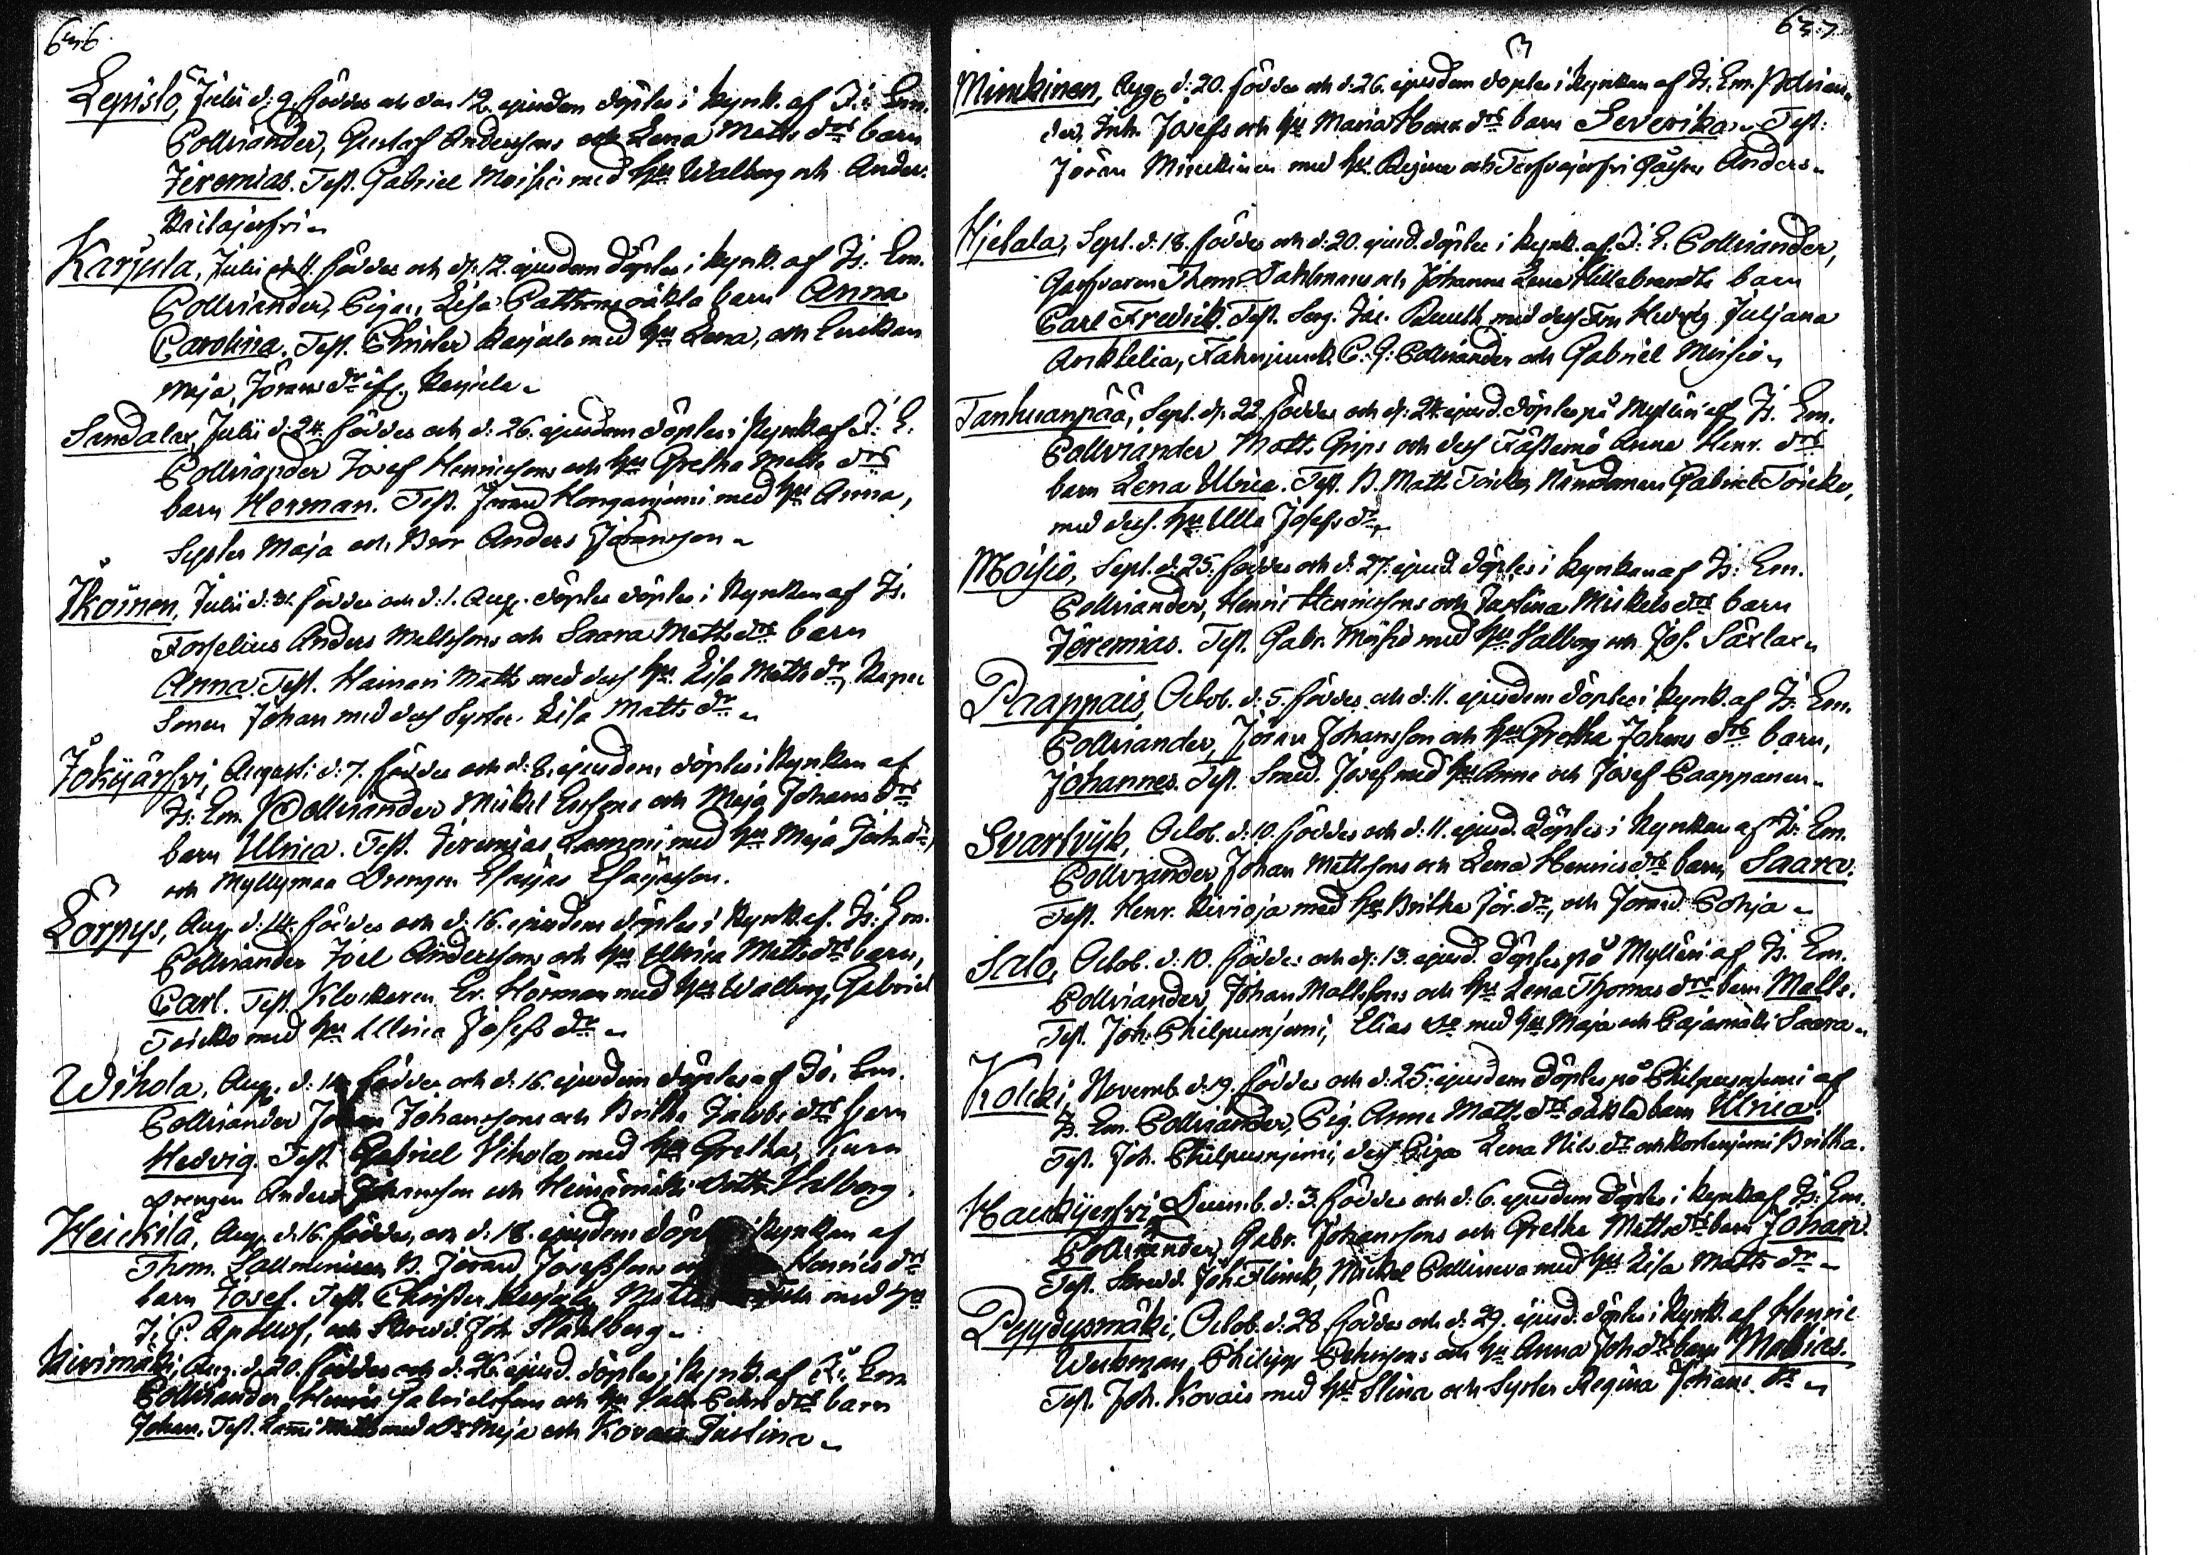 656.
Lepistö, Julii d: 9. födder och den 12. ejusdem döptes i kyrk. af Is: Em.
Pollviander, Gustaf Anderssons och Lena Matts drs barn
Jeremias. Test. Gabriel Moisio med hu Walborg och Anders
Karjula, Julii födder och d: 12. ejusdem döptes i kyrk. af Is: Em.
Pollviander, Pigan Lisa oäkta barn Anna
Carolina. Test. Christer Karjula med hu Lena, och Enckan
Maja, Jörans dr ifr. Karjula
Sandalax, Julii d: 24. födder och d: 26. ejusdem döptes i kyrk af I: E:
Pollviander Josef Henricssons och hu Gretha Matts drs
barn Herman. Test. Jöran Konganjemi med hu Anna,
Syster Maja och Bror Anders Jöransson
Ikoinen, Julii d: 31. födder och d: 1. Aug. döptes döptes i Kyrkan af Is.
Forselius Anders Mattssons och Saara Matts drs barn
Anna. Test. Hainari Matts med dess hu Lisa Matts dr,
Sonen Johan med dess Syster Lisa Matts dr
Jokijärfvi, Augusti d: 7. födder och d: 8. ejusdem döptes i kyrkan af
Is: Em. Pollviander Mickel Erssons och Maja Johans drs
barn Ulrica. Test. Jeremias Lammi med hu Maja Joh. dr,
och Myllymaa Drengen Esaias Esaiasson.
Lörpys, Aug. d: 14. födder och d: 16. ejusdem döptes i Kyrk. af. Is: Em.
Pollviander Joel Anderssons och hu Ulrica Matts drs barn,
Carl. Test. Klockaren Er. Hörman med hu Walborg, Gabriel
Toicko med hu Ulrica Josefs dr
Wihola, Aug. d: 14 födder och d: 16. ejusdem döptes af Is: Em.
Pollviander Johan Johanssons och Britha Jacobs drs barn
Hedvig. Test. Gabriel Vihola med hu Gretha,
Drengen Anders Johansson och Heinämäki Walborg.
Heickilä, Aug. d: 16. födder, och d: 18. ejusdem döptes i kyrkan af
Thom. B. Jöran Josefssons Henrics drs
barn Josef. Test. Christer Karjula, med hu
J. P. och Skredd. Joh. Stahlberg
Kivimäki, Aug. d: 20. födder och d: 26. ejusd. döptes i kyrk. af Is: Em
Pollviander, Henric Gabrielssons och hu barn
Johan. Test. Lammi Matts med Maja och Kovais Justina
657.
Minckinen, Aug. d: 20. födder och d: 26. ejusdem döptes i kyrkan af Is. Em. Pollvian-
der, Josefs och hu Maria Henr. drs barn Severika. Test:
Jöran Minckinen med hu Regina och Anders
Hietala, Sept. d: 18. födder och d: 20. ejusd. döptes i kyrk. af. I: E: Pollviander,
Garfvaren Thom. Dahlmans och Johanna Lena Hillebrandts barn
Carl Fredrik. Test. Serg. Jac. med dess Fru Hedvig Juliana
Fahnjunck. C. G: Pollviander och Gabriel Moisio
Tanhuanpää, Sept. d: 22. födder och d: 24. ejusd. döptes på Mylläri af Is. Em.
Pollviander Matts Grips och dess Fästemö Anna Henr. drs
barn Lena Ulrica. Test. B. Matts Toicko, Nämdeman Gabriel Toicko,
med dess. hu Ulla Josefs dr
Moisio, Sept. d: 25. födder och d: 27. ejusd. döptes i kyrkan af Is: Em.
Pollviander, Henric Henricssons och Justina Mickels drs barn
Jeremias. Test. Gabr. Moisio med hu Valborg och Jos. Saxlax
Paappais, Octob. d: 5. födder och d: 11. ejusdem döptes i kyrk. af Is: Em.
Pollviander, Jöran Johansson och hu Gretha Johans drs barn,
Johannes. Test. Smed. Josef med hu Anna och Josef Paappanen
Svartvijk, Octob. d: 10. födder och d: 11. ejusd. döptes i Kyrkan af Is. Em.
Pollviander Johan Mattssons och Lena Henrics drs barn Saara.
Test. Henr. Kivioja med hu Britha Jör. dr, och Jöran Pohja
Salo, Octob. d: 10. födder och d: 13. ejusd. döptes på Mylläri af Is. Em.
Pollviander, Johan Mattssons och hu Lena Thomas drs barn Matts.
Test. Joh: Philpusnjemi, Elias med hu Maja och Pajamäki Saara
Kolcki, Novemb. d: 19. födder och d: 25: ejusdem döptes på Philpusnjemi af
Is. Em. Pollviander, Pig. Anna Matts drs oäkta barn Ulrica.
Test. Joh. Philpusnjemi, dess Piga Lena Nils dr och Britha.
Haukijerfvi, Decemb. d: 3. födder och d: 6. ejusdem döptes i kyrk af Is: Em.
Pollviander, Gabr. Johanssons och Gretha Matts drs barn Johan.
Test. Skredd. Joh. Flinck, Mickel med hu Lisa Matts dr
Pyydysmäki, Octob. d: 28 födder och d: 29. ejusd. döptes i kyrk. af Henric
Weckman, Philipp och hu Anna Joh drs barn Mathias.
Test. Joh. Kovais med hu Stina och Syster Regina Johans. dr